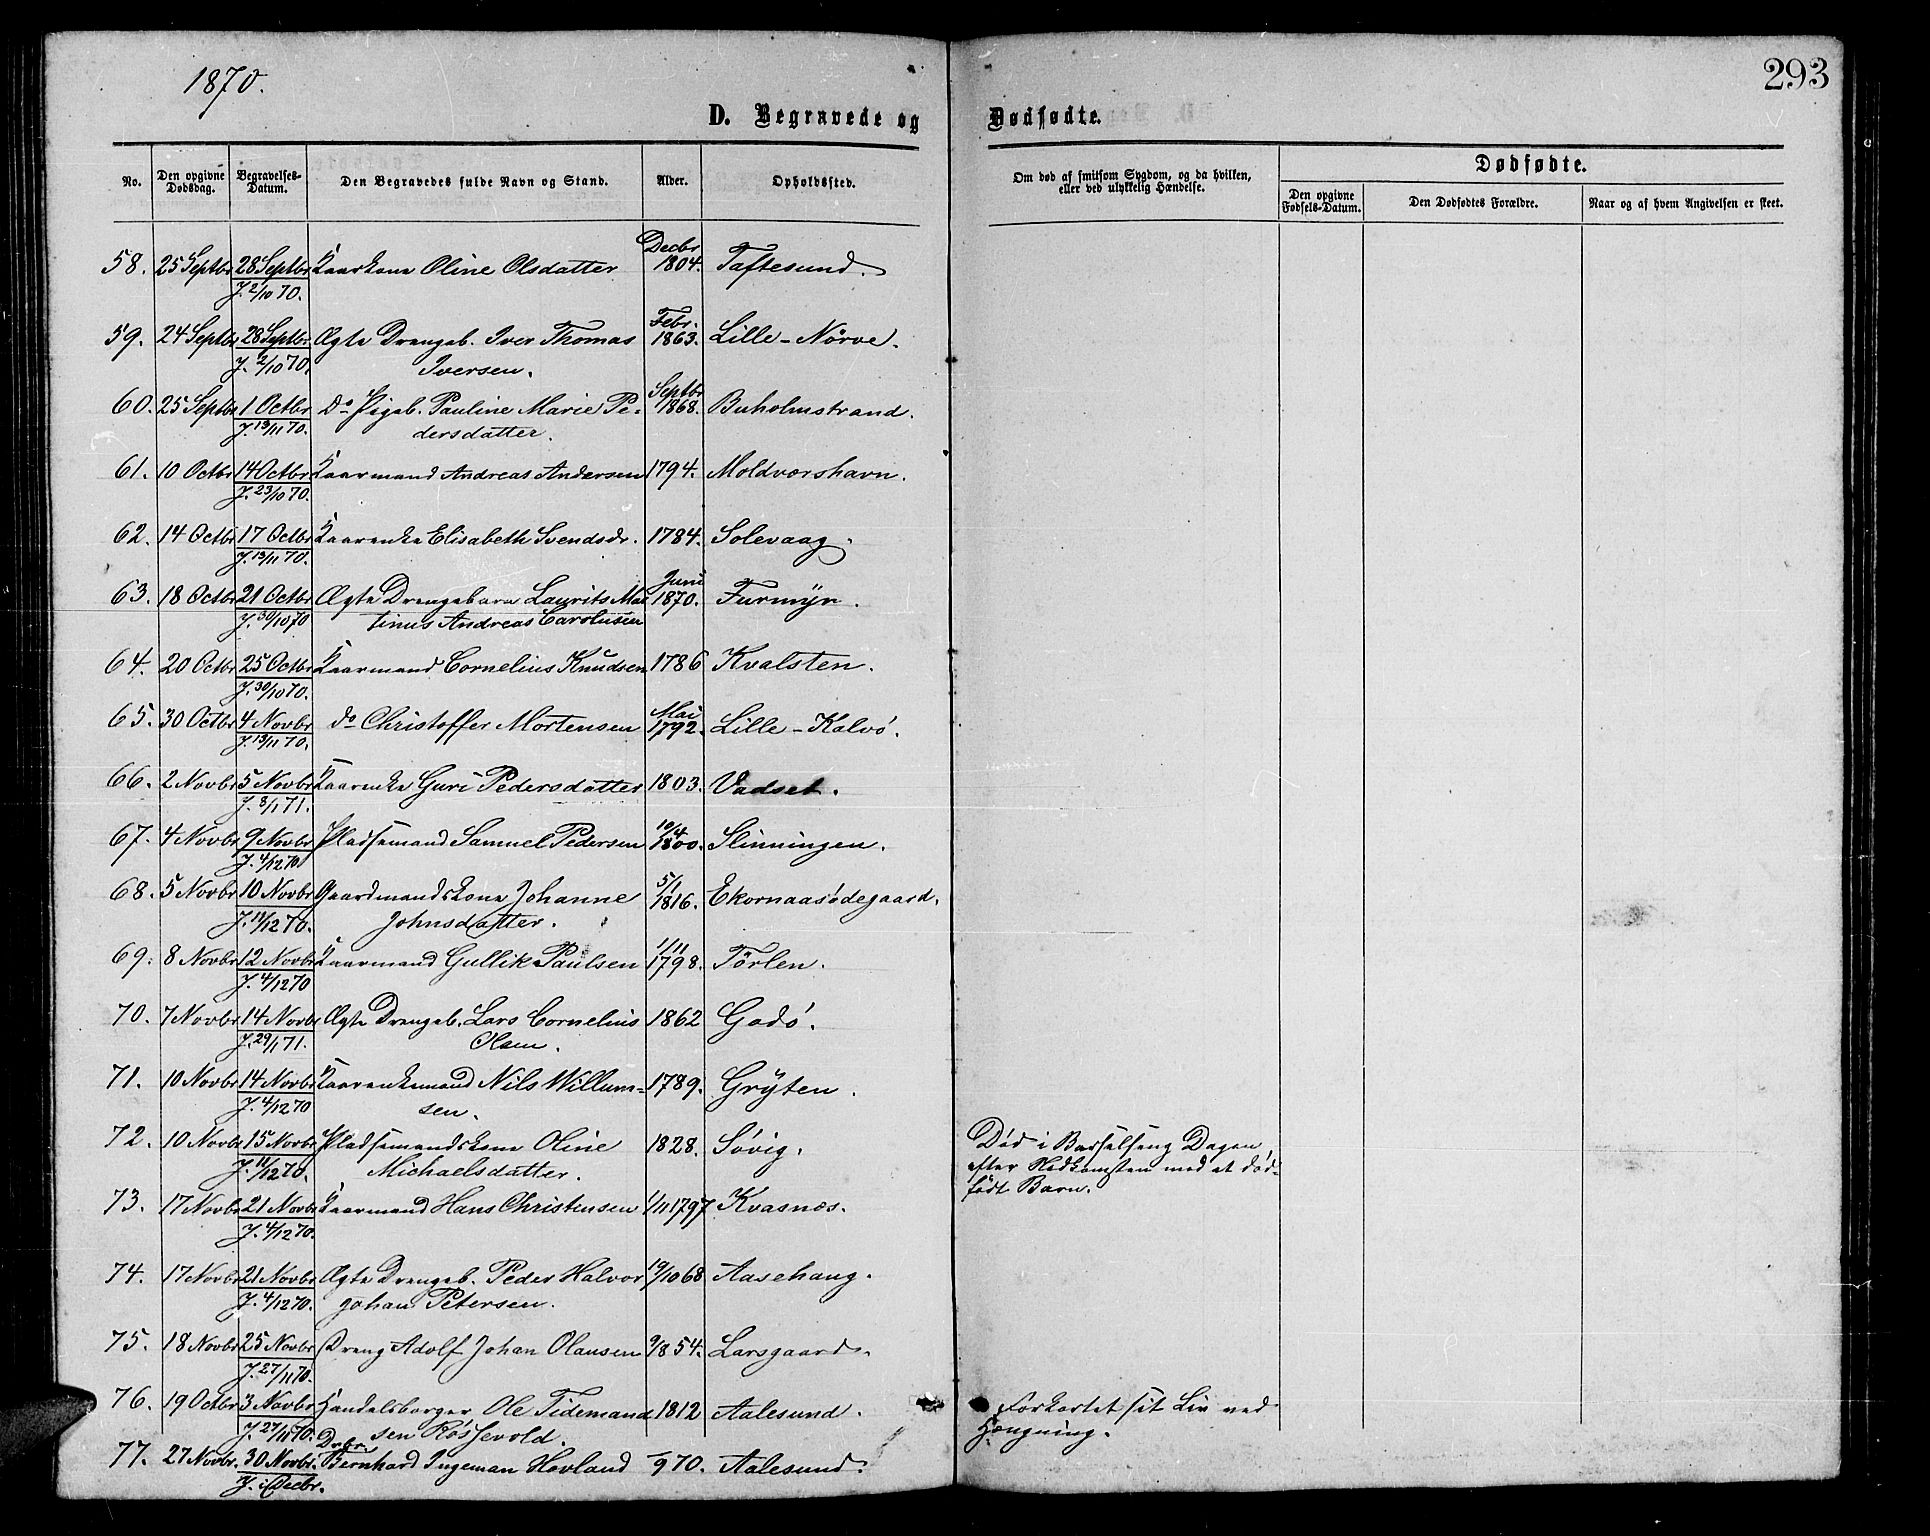 1870.
293
D. Begravede og Dødfødte.
No. Den opgivne Dødsdag. Begravelses-Datum. Den Begravedes fulde Navn og Stand. Alder. Opholdssted. Om død af smitsom Sygdom, og da hvilken, eller ved ulykkelig Hændelse. Dødfødte. Den opgivne Fødsels-Datum. Den Dødfødtes Forældre. Naar og af hvem Angivelsen er skeet.
Decbr
58. 25 Septbr 28 Septbr Kaarkone Oline Olsdatter 1804. Taftesund.
J. 2/10 70.
Febr.
59. 24 Septbr 28 Septbr Ægte Drengeb. Iver Thomas 1863. Lille-Nörve.
J. 2/10 70. Iversen.
Septbr
60. 25 Septbr 1 Octbr Do Pigeb. Pauline Marie Pe- 1868. Buholmstrand.
J. 13/11 70. dersdatter.
61. 10 Octbr 14 Octbr Kaarmand Andreas Andersen 1794. Moldværshavn.
J. 23/10 70.
62. 14 Octbr 17 Octbr Kaarenke Elisabeth Svendsdr. 1784. Solevaag.
J. 13/11 70.
Juni
63. 18 Octbr 21 Octbr Ægte Drengebarn Laurits Mar 1870. Furmyr.
J. 30/10 70 tinus Andreas Carolusen
64. 20 Octbr 25 Octbr Kaarmand Cornelius Knudsen 1786 Kvalsten.
J. 30/10 70.
Mai
65. 30 Octbr 4 Novbr do Christoffer Mortensen 1792. Lille-Kalvö.
J. 13/11 70.
66. 2 Novbr 5 Novbr Kaarenke Guri Pedersdatter 1803. Vadset.
J. 8/1 71.
10/4
67. 4 Novbr 9 Novbr Pladsemand Samuel Pedersen 1800. Slinningen.
J. 4/12 70
5/1
68. 5 Novbr 10 Novbr Gaardmandskone Johanne 1816. Ekornaasödegaard.
J. 11/12 70. Johnsdatter.
1/11
69. 8 Novbr 12 Novbr Kaarmand Gullik Paulsen 1798. Törlen.
J. 4/12 70
70. 7 Novbr 14 Novbr Ægte Drengeb. Lars Cornelius 1862 Godö.
J. 29/1 71. Olsen.
71. 10 Novbr 14 Novbr Kaarenkemand Nils Willum- 1789. Gryten.
J. 4/12 70 sen.
72. 10 Novbr 15 Novbr Pladsemandskone Oline 1828. Sövig. Död i Barselseng Dagen
J. 11/12 70. Michaelsdatter. efter Nedkomsten med et død-
födt Barn.
73. 17 Novbr 21 Novbr Kaarmand Hans Christensen 1/11 1797 Kvasnes.
J. 4/12 70.
74. 17 Novbr 21 Novbr Ægte Drengeb. Peder Halvor 19/10 68 Aasehaug.
J. 4/12 70. Johan Petersen.
75. 18 Novbr 25 Novbr Dreng Adolf Johan Olausen 9/8 54. Larsgaard.
J. 27/11 70.
76. 19 Octbr 3 Novbr Handelsborger Ole Tidemand 1812 Aalesund. Forkortet sit Liv ved
J. 27/11 70. sen Rössevold. Hængning.
Drbr.
77. 27 Novbr. 30 Novbr. Bernhard Ingeman Hovland 970. Aalesund.
J. i Decbr.